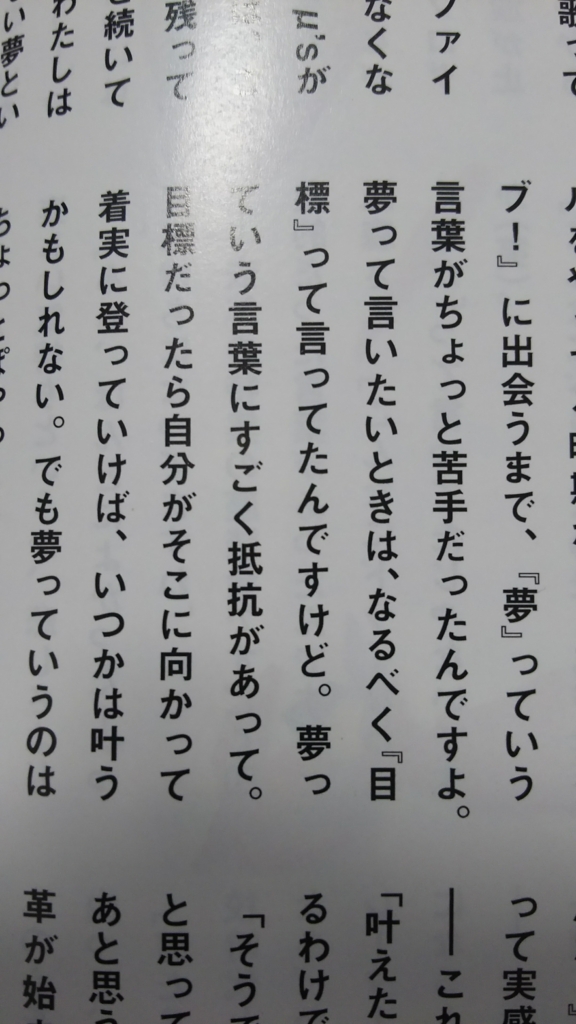 歌って
ファイ
なくな
μ'sが
残って
と続いて
わたしは
い夢とい
ブ！』に出会うまで、『夢』っていう
言葉がちょっと苦手だったんですよ。
夢って言いたいときは、なるべく『目
標』って言ってたんですけど。夢っ
ていう言葉にすごく抵抗があって。
目標だったら自分がそこに向かって
着実に登っていけば、いつかは叶う
かもしれない。でも夢っていうのは
って実感
──これ
「叶えた
るわけで
「そうで
と思って
あと思う
革が始